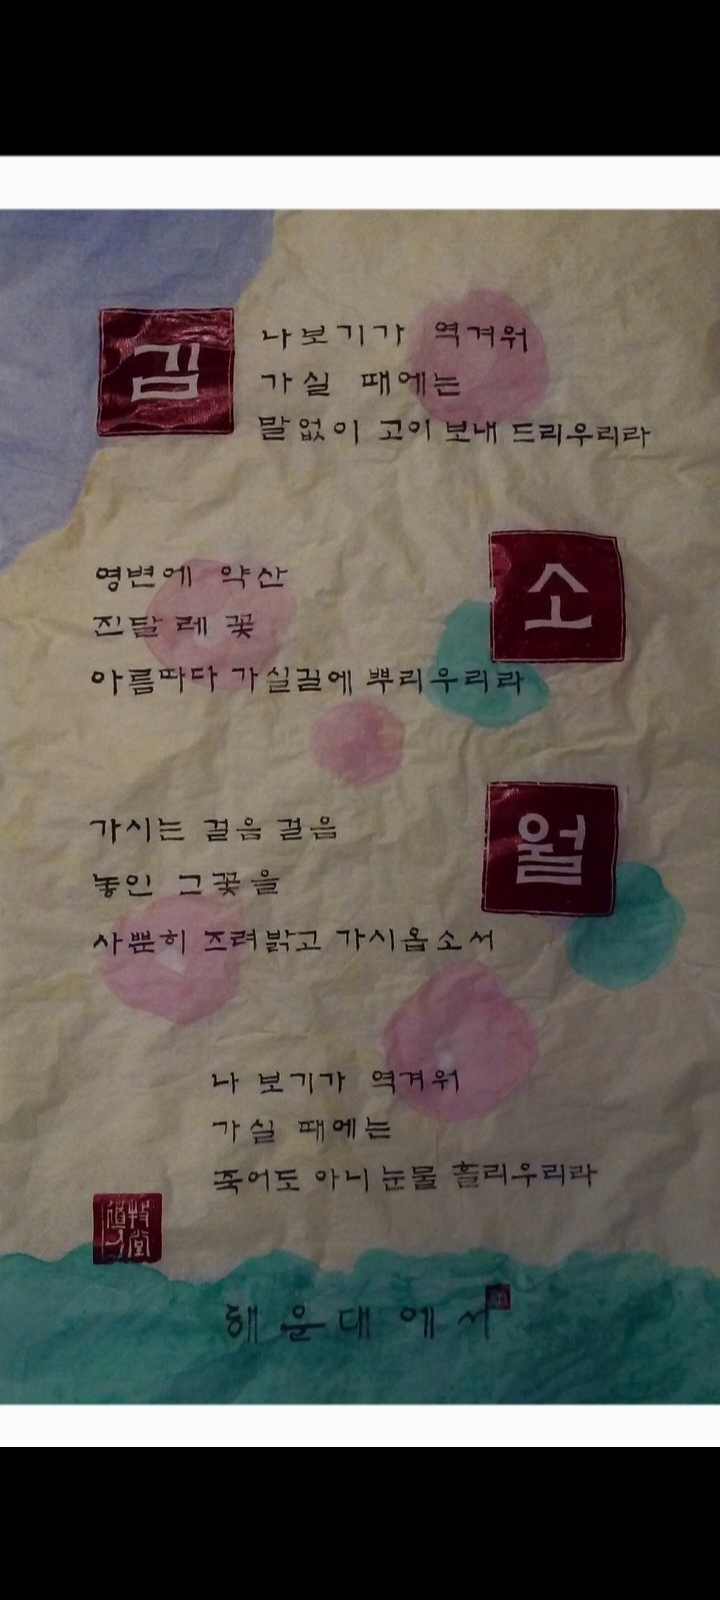 김
나보기가 역겨워
가실 때에는
말없이 고이 보내 드리우리라
영변에 약산
진달레 꽃
소
아름따다 가실길에 뿌리우리라
가시는 걸음 걸음
월
놓인 그꽃을
사뿐히 즈려밝고 가시옵소서
나 보기가 역겨워
가실 때에는
죽어도 아니 눈물 흘리우리라
해운대에서